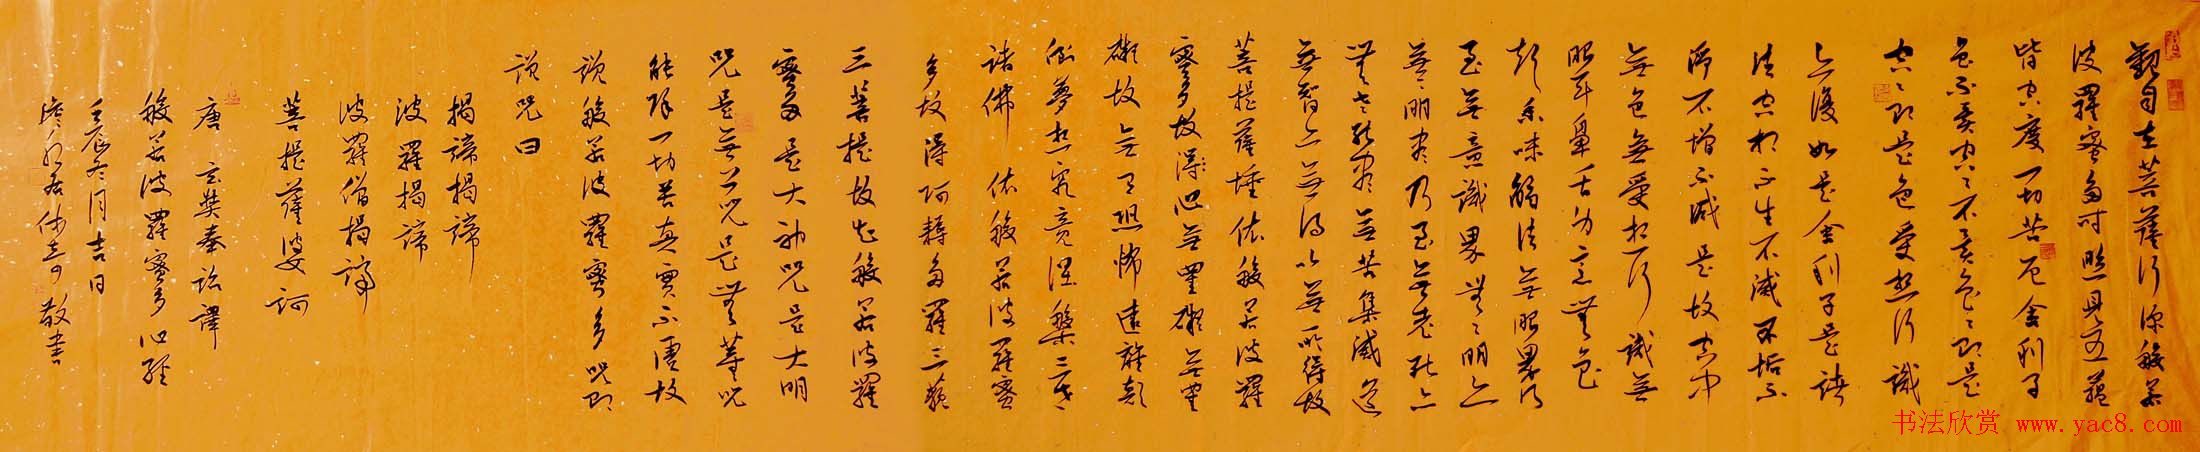 觀自在菩薩行深般若
波羅蜜多時照見五蘊
皆空度一切苦厄舍利子
色不異空空不異色色即是
空空即是色受想行識
亦復如是舍利子是諸
法空相不生不滅不垢不
淨不增不減是故空中
無色無受想行識無
眼耳鼻舌身意無色
聲香味觸法無眼界乃
至無意識界無無明亦
無無明盡乃至無老死亦
無老死盡無苦集滅道
無智亦無得以無所得故
菩提薩埵依般若波羅
蜜多故得心無罣礙無罣
礙故無有恐怖遠離顛
倒夢想究竟涅槃三世
諸佛 依般若波羅蜜
多故得阿耨多羅三藐
三菩提故知般若波羅
蜜多是大神咒是大明
咒是無上咒是無等等咒
能除一切苦真實不虛故
說般若波羅蜜多咒即
說咒曰
揭諦揭諦
波羅揭諦
波羅僧揭諦
菩提薩婆訶
唐 玄奘奉詔譯
般若波羅蜜多心經
壬辰冬月吉日
敬書
书法欣赏 www.yac8.com